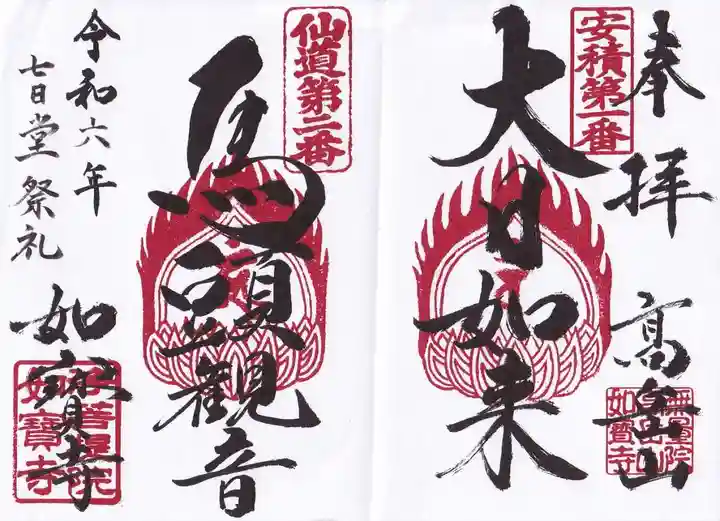 奉拝
安積第一番
大日如来
高岳山
如寶寺
仙道第二番
馬頭観音
如寳寺
如寶寺
令和六年
七日堂祭礼